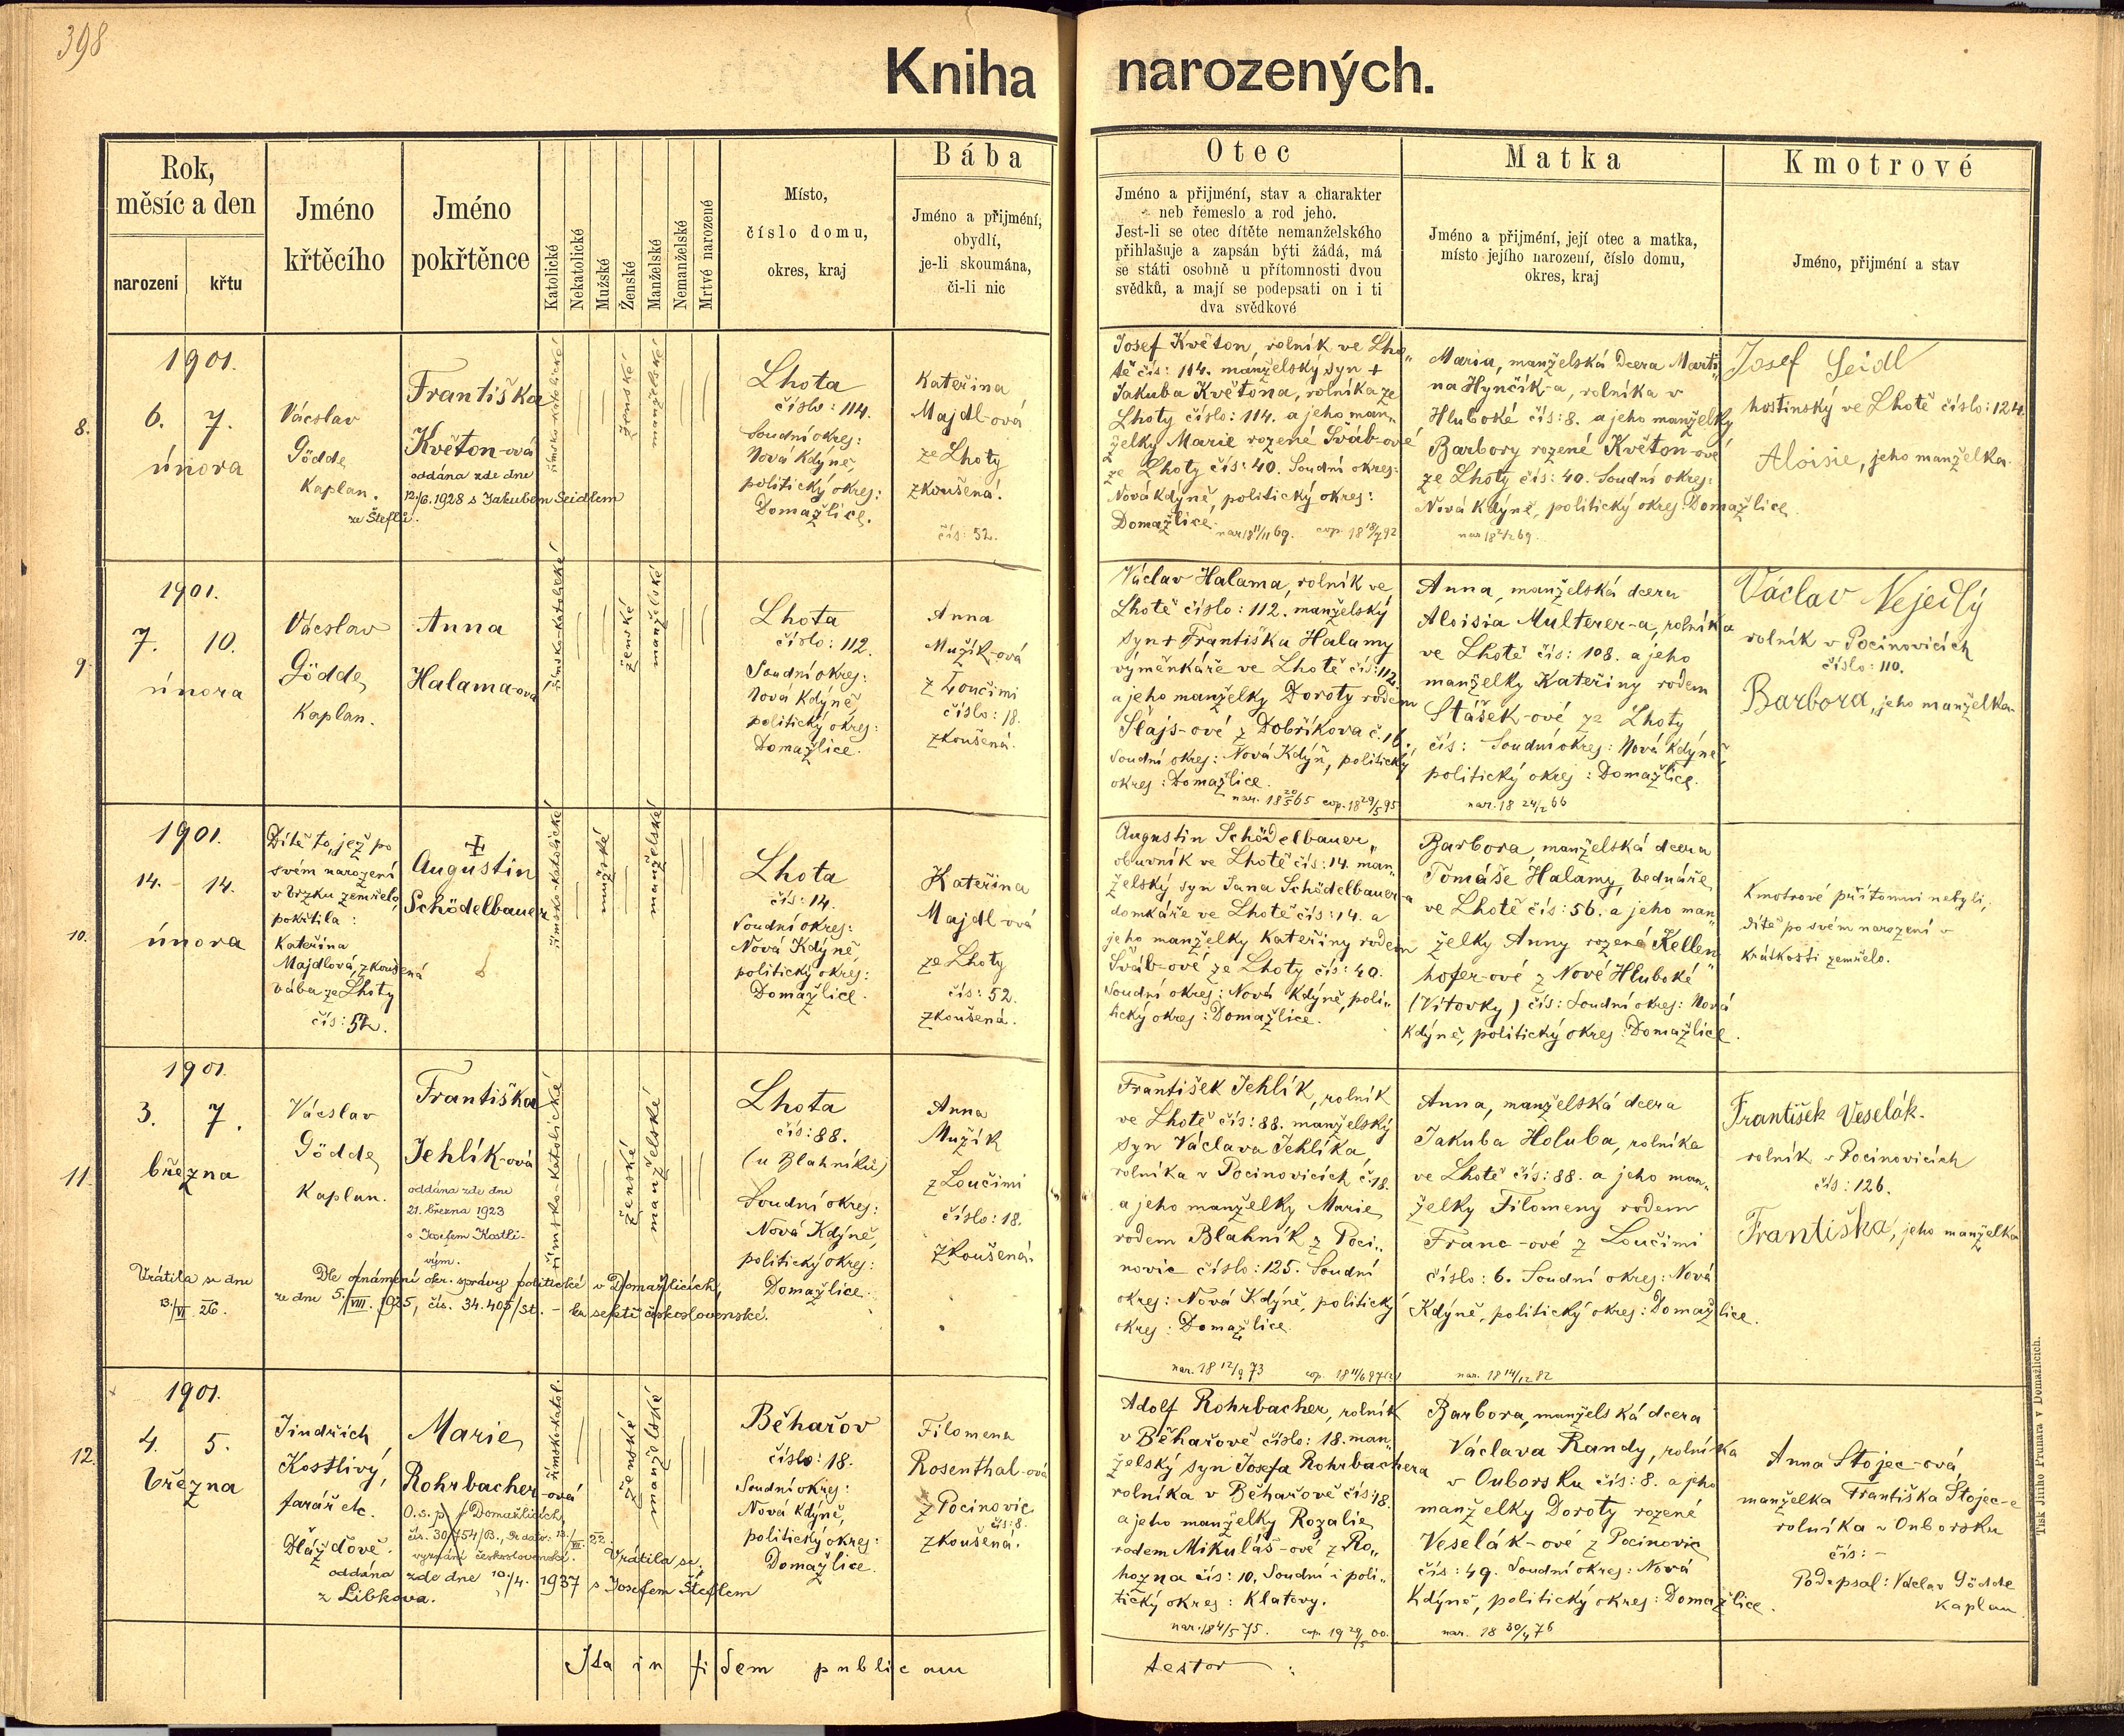 398
Kniha narozených.
Rok,
měsíc a den
narození
křtu
Jméno
křtěcího
Jméno
pokřtěnce
Katolické
Nekatolické
Mužské
Ženské
Manželské
Nemanželské
Mrtvé narozené
Místo,
číslo domu,
okres, kraj
Bába
Jméno a přijmení,
obydlí,
je-li skoumána,
či-li nic
Otec
Jméno a přijmení, stav a charakter
neb řemeslo a rod jeho.
Jest-li se otec dítěte nemanželského
přihlašuje a zapsán býti žádá, má
se státi osobně u přítomnosti dvou
svědků, a mají se podepsati on i ti
dva svědkové
Matka
Jméno a přijmení, její otec a matka,
místo jejího narození, číslo domu,
okres, kraj
Kmotrové
Jméno, přijmení a stav
8.
1901.
6. 7.
února
Vácslav
Gödde,
Kaplan.
Františka
Květon-ová
oddána zde dne
12./6. 1928 s Jakubem Seidlem
ze Šteflů.
římsko-katolické
ženské
manželské
Lhota
číslo: 114.
Soudní okres:
Nová Kdýně,
politický okres:
Domažlice.
Kateřina
Majdl-ová
ze Lhoty
zkoušená.
čís: 52.
Josef Květon, rolník ve Lho„
tě čís: 114. manželský syn +
Jakuba Květona, rolníka ze
Lhoty číslo: 114. a jeho man„
želky Marie rozené Šváb-ové
ze Lhoty čís: 40. Soudní okres:
Nová Kdýně, politický okres:
Domažlice.
Maria, manželská dcera Marti„
na Hynčík-a, rolníka v
Hluboké čís: 8. a jeho manželky
Barbory rozené Květon-ové
ze Lhoty čís: 40. Soudní okres:
Nová Kdýně, politický okres: Domažlice.
Josef Seidl
hostinský ve Lhotě číslo: 124.
Aloisie, jeho manželka.
9.
1901.
7. 10.
února
Vácslav
Gödde,
Kaplan.
Anna
Halama-ová
římsko-katolické
ženské
manželské
Lhota
číslo: 112.
Soudní okres:
Nová Kdýně,
politický okres:
Domažlice.
Anna
Mužík-ová
z Loučimi
číslo: 18.
zkoušená.
Václav Halama, rolník ve
Lhotě číslo: 112. manželský
syn + Františka Halamy
výměnkáře ve Lhotě čís: 112.
a jeho manželky Doroty rodem
Šlajs-ové z Dobříkova č. 16.,
Soudní okres: Nová Kdýň, politický
okres: Domažlice.
nar. 18 20/5 65 cop. 18 29/5 95
Anna, manželská dcera
Aloisia Multerer-a, rolníka
ve Lhotě čís: 108. a jeho
manželky Kateřiny rodem
Stášek-ové ze Lhoty
čís: Soudní okres: Nová Kdýně
politický okres: Domažlice.
nar. 18 24/2 66
Václav Nejedlý
rolník v Pocinovicích
číslo: 110.
Barbora, jeho manželka
10.
1901.
14. 14.
února
Dítě to, jež po
svém narození
v brzku zemřelo,
pokřtila:
Kateřina
Majdlová, zkoušená
bába ze Lhoty
čís: 52.
+
Augustin
Schödelbauer
římsko-katolické
mužské
manželské
Lhota
čís: 14.
Soudní okres:
Nová Kdýně,
politický okres:
Domažlice.
Kateřina
Majdl-ová
ze Lhoty
čís: 52.
zkoušená.
Augustin Schödelbauer,
obuvník ve Lhotě čís: 14. man„
želský syn Jana Schödelbauer-a
domkáře ve Lhotě čís: 14. a
jeho manželky Kateřiny rodem
Šváb-ové ze Lhoty čís: 40.
Soudní okres: Nová Kdýně, poli„
tický okres: Domažlice.
Barbora, manželská dcera
Tomáše Halamy, bednáře
ve Lhotě čís: 56. a jeho man„
želky Anny rozené Kellen„
hofer-ové z Nové Hluboké
(Vítovky) čís: Soudní okres: Nová
Kdýně, politický okres: Domažlice.
Kmotrové přítomni nebyli,
dítě po svém narození v
krátkosti zemřelo.
11.
1901.
3. 7.
března
Vácslav
Gödde,
Kaplan.
Františka
Jehlík-ová
oddána zde dne
21. března 1923
s Josefem Kostli-
vým.
Vrátila se dne
13./VI. 26.
Dle oznámení okr. správy politické v Domažlicích,
ze dne 5./VIII. 1925, čís. 34.405/st. – ku sektě československé.
římsko-katolické
ženské
manželské
Lhota
čís: 88.
(u Blahníků)
Soudní okres:
Nová Kdýně,
politický okres:
Domažlice.
Anna
Mužík
z Loučimi
číslo: 18.
zkoušená.
František Jehlík, rolník
ve Lhotě čís: 88. manželský
syn Václava Jehlíka,
rolníka v Pocinovicích č. 18.
a jeho manželky Marie
rodem Blahník z Poci„
novic číslo: 125. Soudní
okres: Nová Kdýně, politický
okres: Domažlice.
nar. 18 12/9 73
Anna, manželská dcera
Jakuba Holuba, rolníka
ve Lhotě čís: 88. a jeho man„
želky Filomeny rodem
Franc-ové z Loučimi
číslo: 6. Soudní okres: Nová
Kdýně, politický okres: Domažlice.
nar. 18 14/12 82
František Veselák.
rolník v Pocinovicích
čís: 126.
Františka, jeho manželka
12.
1901.
4. 5.
března
Jindřich
Kostlivý,
farář etc.
Dláždově.
Marie
Rohrbacher-ová
O. s. p. v Domažlicích,
vyznání československé.
Vrátila se.
oddána zde dne 10./4. 1937 s Josefem Šteflem
z Libkova.
římsko-katol.
ženské
manželské
Běhařov
číslo: 18.
Soudní okres:
Nová Kdýně,
politický okres:
Domažlice.
Filomena
Rosenthal-ová
z Pocinovic
čís: 8.
zkoušená.
Adolf Rohrbacher, rolník
v Běhařově číslo: 18. man„
želský syn Josefa Rohrbachera
rolníka v Běhařově čís: 18.
a jeho manželky Rozalie
rodem Mikuláš-ové z Ro„
hozna čís: 10, Soudní i poli„
tický okres: Klatovy.
nar. 18 4/5 75. cop. 19 29/5 00.
Barbora, manželská dcera
Václava Randy, rolníka
v Ouborsku čís: 8. a jeho
manželky Doroty rozené
Veselák-ové z Pocinovic
čís: 49. Soudní okres: Nová
Kdýně, politický okres: Domažlice.
nar. 18 30/4 76
Anna Stojec-ová,
manželka Františka Stojec-e
rolníka v Ouborsku
čís: –
Podepsal: Václav Gödde
kaplan.
Ita in fidem publicam testor:
Tisk Jiřího Prunara v Domažlicích.